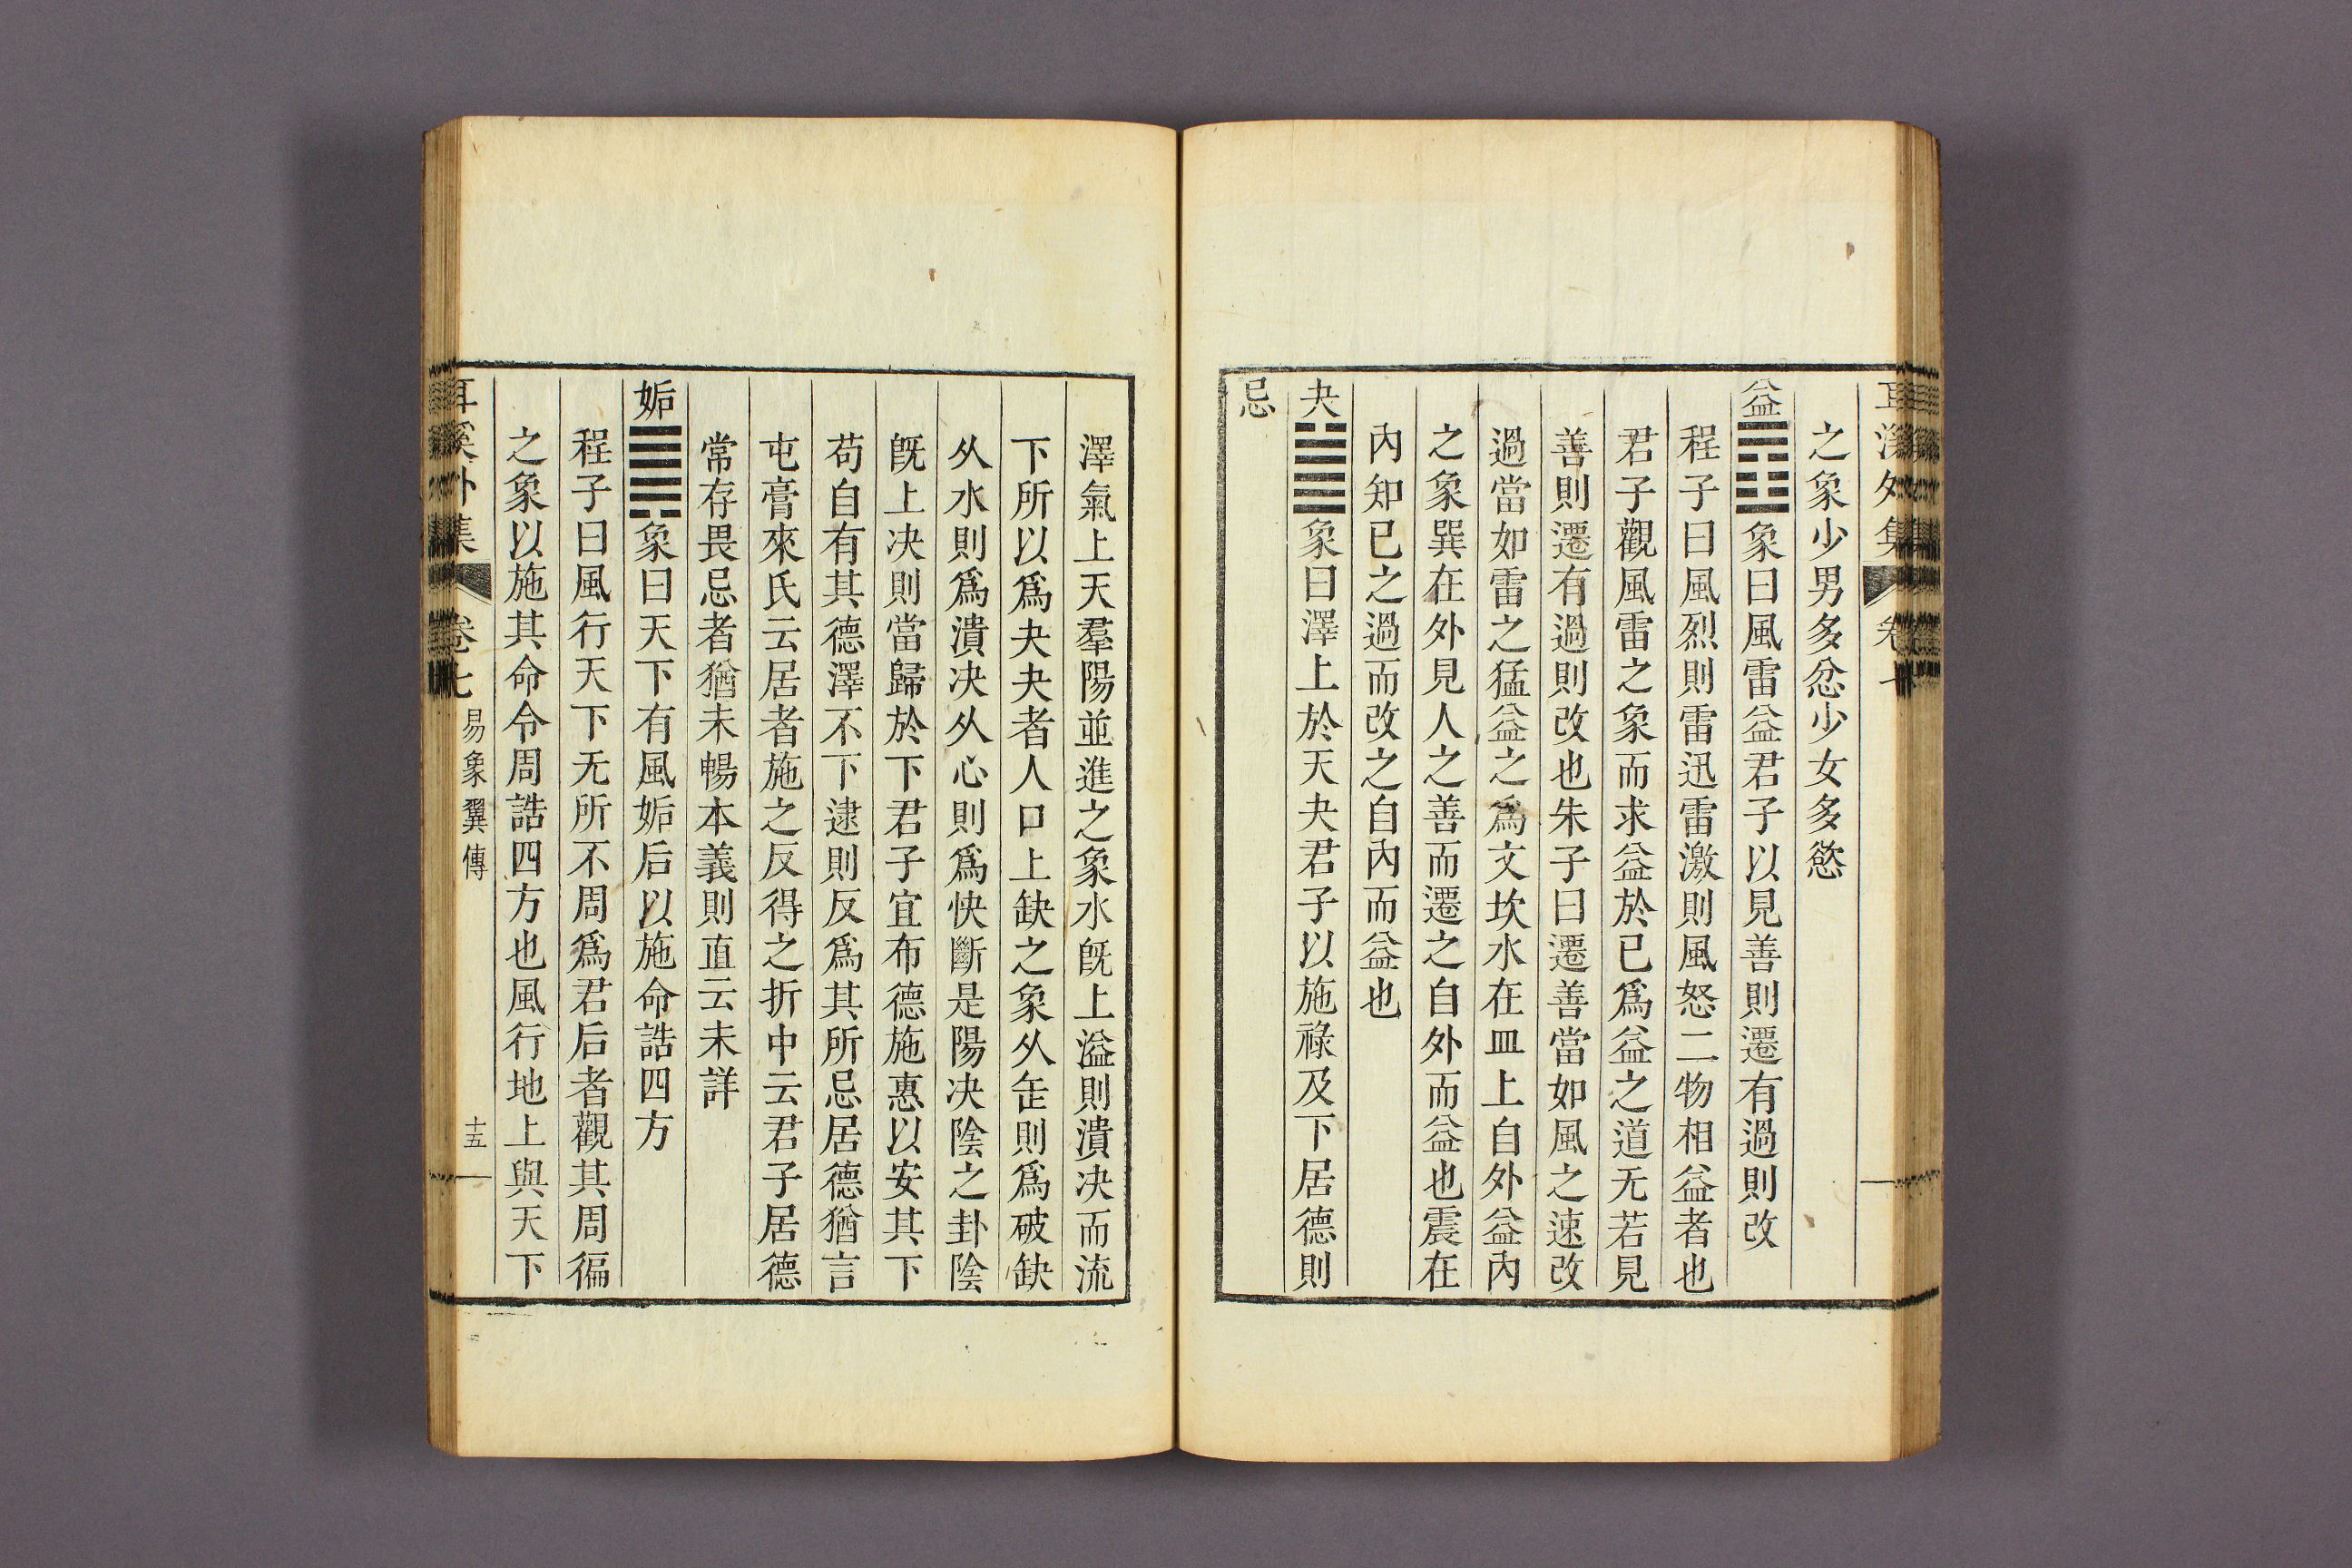 耳溪外集 卷七
之象少男多忿少女多慾
益䷩象曰風雷益君子以見善則遷有過則改
程子曰風烈則雷迅雷激則風怒二物相益者也
君子觀風雷之象而求益於已爲益之道无若見
善則遷有過則改也朱子曰遷善當如風之速改
過當如雷之猛益之爲文坎水在皿上自外益內
之象巽在外見人之善而遷之自外而益也震在
內知已之過而改之自內而益也
夬䷪象曰澤上於天夬君子以施祿及下居德則
忌
澤氣上天羣陽並進之象水旣上溢則潰决而流
下所以爲夬夬者人口上缺之象从缶則爲破缺
从水則爲潰决从心則爲快斷是陽决陰之卦陰
旣上决則當歸於下君子宜布德施惠以安其下
苟自有其德澤不下逮則反爲其所忌居德猶言
屯膏來氏云居者施之反得之折中云君子居德
常存畏忌者猶未暢本義則直云未詳
姤䷫象曰天下有風姤后以施命誥四方
程子曰風行天下无所不周爲君后者觀其周徧
之象以施其命令周誥四方也風行地上與天下
耳溪外集 卷七 易象翼傳 十五